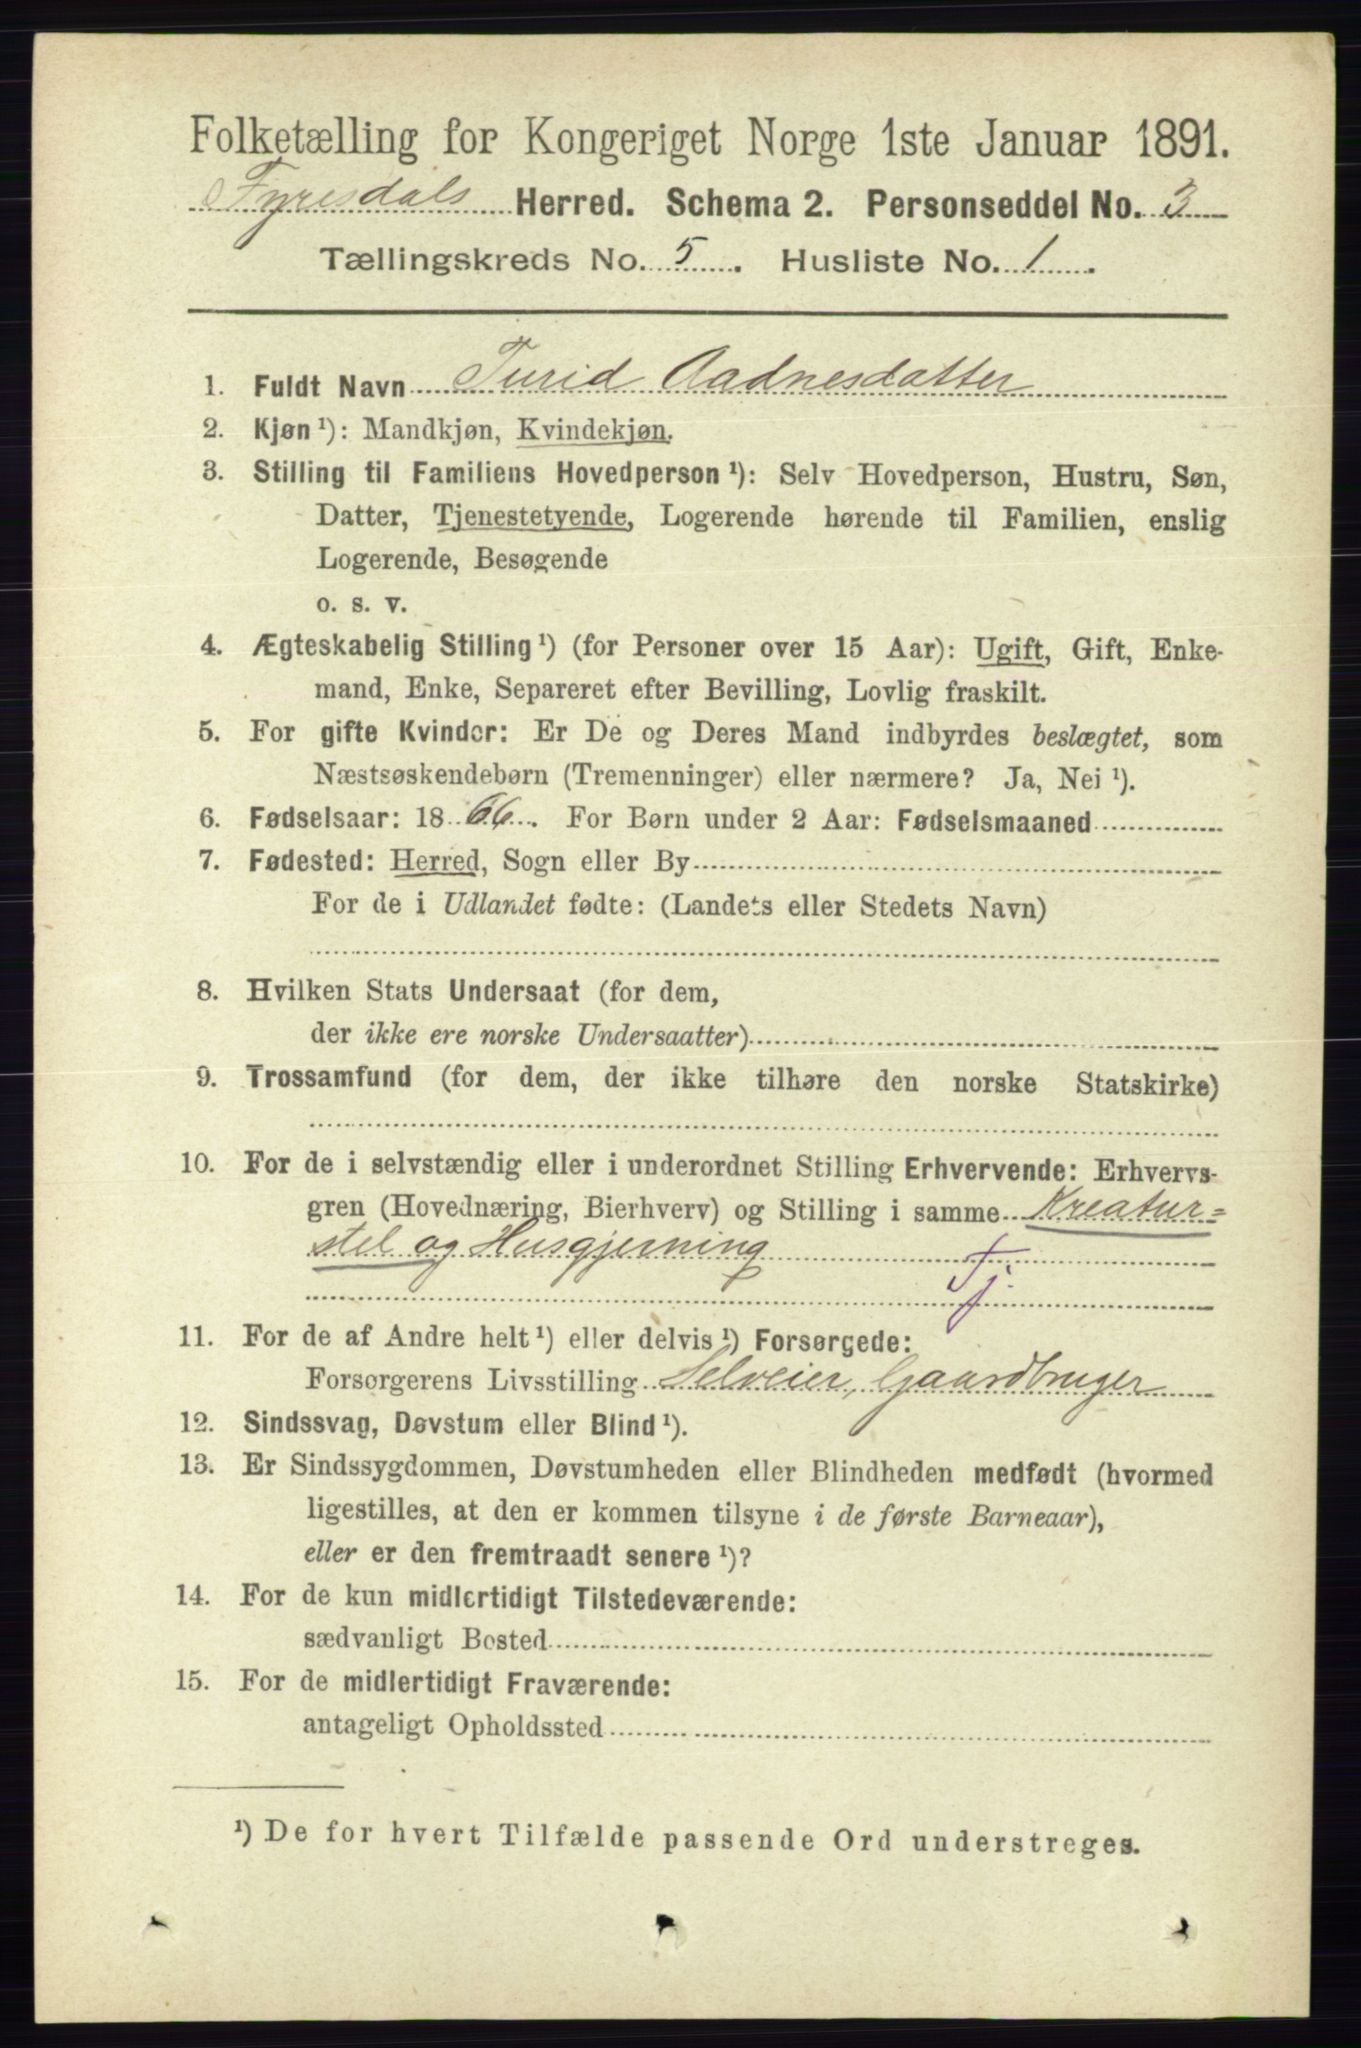 Folketælling for Kongeriget Norge 1ste Januar 1891.
Fyresdals Herred. Schema 2. Personseddel No. 3
Tællingskreds No. 5. Husliste No. 1.
1. Fuldt Navn Turid Aadnesdatter
2. Kjøn ¹): Mandkjøn, Kvindekjøn.
3. Stilling til Familiens Hovedperson ¹): Selv Hovedperson, Hustru, Søn,
Datter, Tjenestetyende, Logerende hørende til Familien, enslig
Logerende, Besøgende
o. s. v.
4. Ægteskabelig Stilling ¹) (for Personer over 15 Aar): Ugift, Gift, Enke-
mand, Enke, Separeret efter Bevilling, Lovlig fraskilt.
5. For gifte Kvinder: Er De og Deres Mand indbyrdes beslægtet, som
Næstsøskendebørn (Tremenninger) eller nærmere? Ja, Nei ¹).
6. Fødselsaar: 1866. For Børn under 2 Aar: Fødselsmaaned
7. Fødested: Herred, Sogn eller By
For de i Udlandet fødte: (Landets eller Stedets Navn)
8. Hvilken Stats Undersaat (for dem,
der ikke ere norske Undersaatter)
9. Trossamfund (for dem, der ikke tilhøre den norske Statskirke)
10. For de i selvstændig eller i underordnet Stilling Erhvervende: Erhvervs-
gren (Hovednæring, Bierhverv) og Stilling i samme Kreatur=
stel og Husgjerning
Tj
11. For de af Andre helt ¹) eller delvis ¹) Forsørgede:
Forsørgerens Livsstilling Selveier, Gaardbruger
12. Sindssvag, Døvstum eller Blind ¹).
13. Er Sindssygdommen, Døvstumheden eller Blindheden medfødt (hvormed
ligestilles, at den er kommen tilsyne i de første Barneaar),
eller er den fremtraadt senere ¹)?
14. For de kun midlertidigt Tilstedeværende:
sædvanligt Bosted
15. For de midlertidigt Fraværende:
antageligt Opholdssted
¹) De for hvert Tilfælde passende Ord understreges.